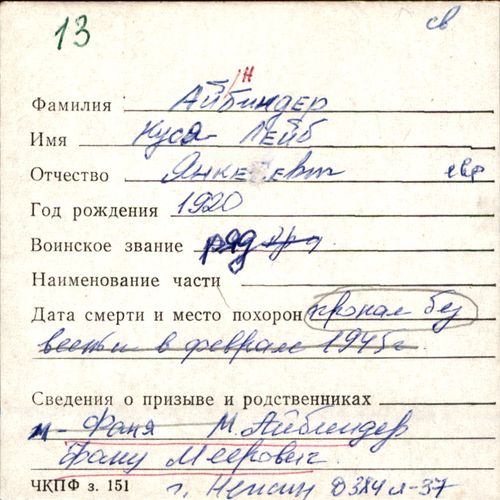 13
св
н
Фамилия Айбиндер
Имя Нуся Лейб
Отчество Янкелевич евр
Год рождения 1920
Воинское звание ряд
Наименование части
Дата смерти и место похорон пропал без
вести в феврале 1945г.
Сведения о призыве и родственниках
м- Фаня М. Айбиндер
Меерович
ЧКПФ з. 151 г.